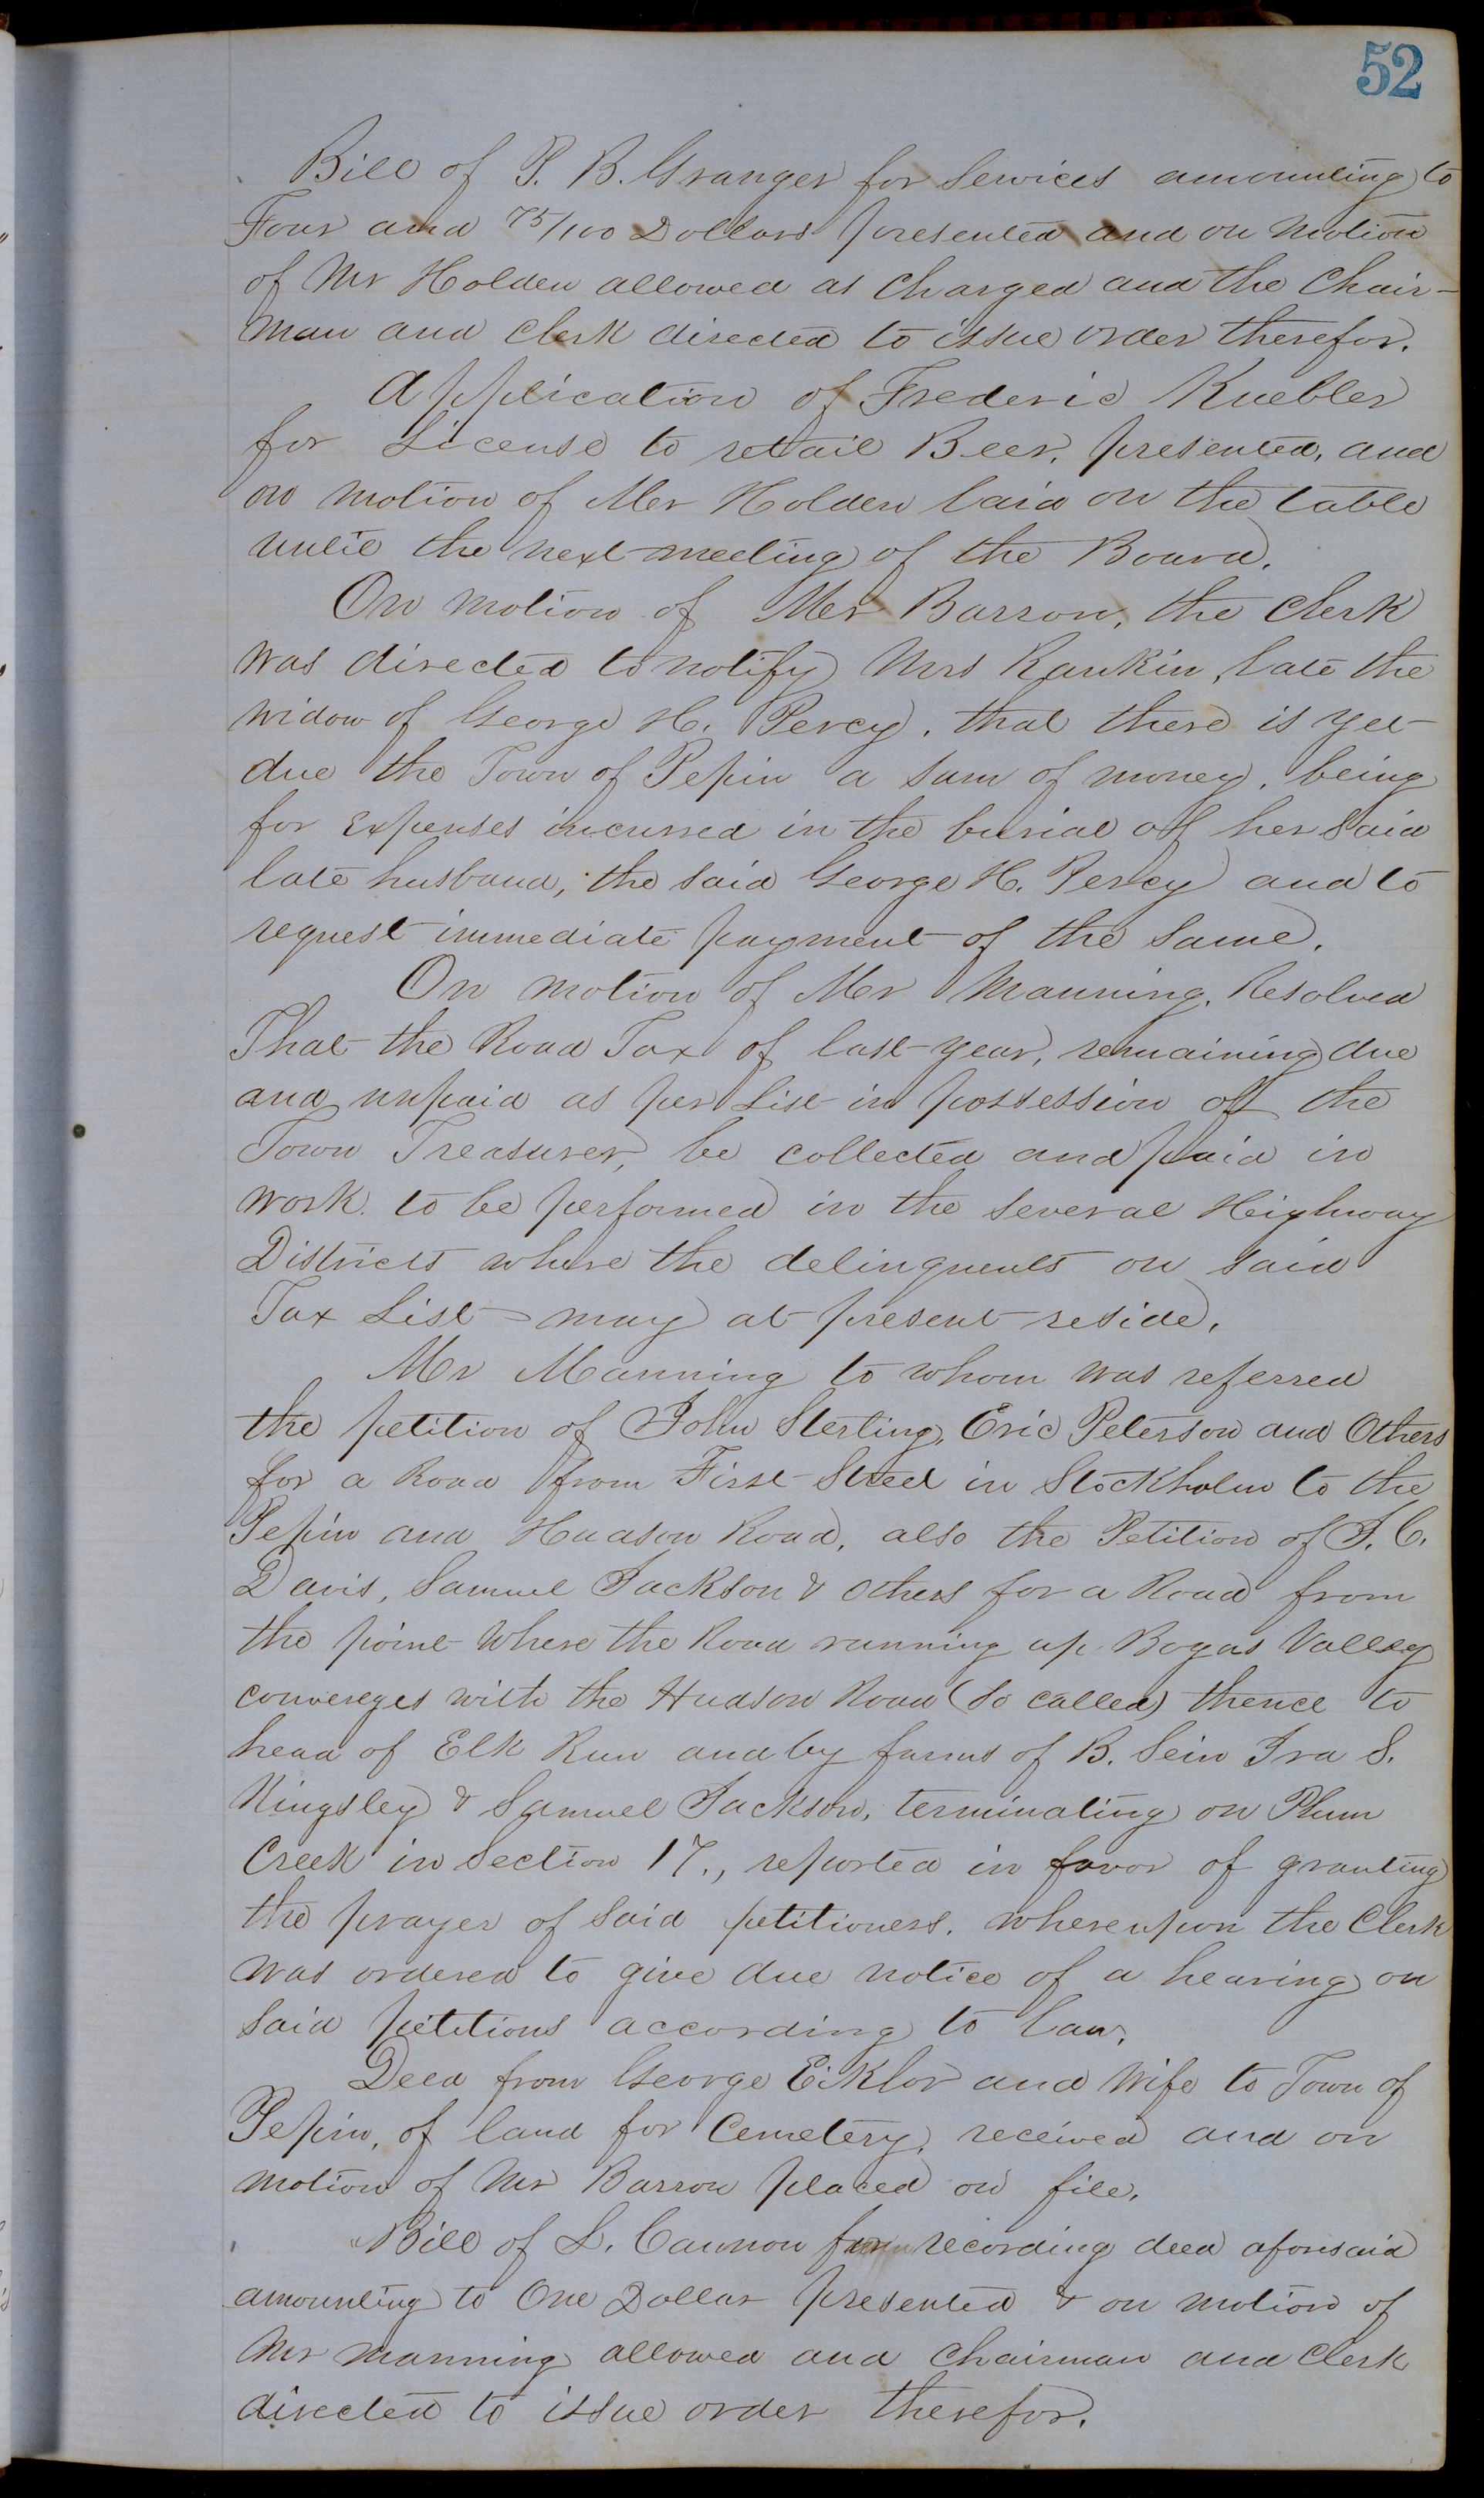 52
Bill of P. B. Granger for Services amounting to
Four and 75/100 Dollars presented and on Motion
of Mr Holden allowed as Charged and the Chair-
man and Clerk directed to issue order therefor.
Application of Frederic Kuebler
for License to retail Beer, presented, and
on motion of Mr Holden laid on the table
until the next meeting of the Board.
On motion of Mr Barron, the Clerk
was directed to notify Mrs Rankin, late the
widow of George H. Percy, that there is yet
due the Town of Pepin a sum of money, being
for expenses incurred in the burial of her said
late husband, the said George H. Percy and to
request immediate payment of the same.
On motion of Mr Manning, Resolved
That the Road Tax of last year, remaining due
and unpaid as per List in possession of the
Town Treasurer, be collected and paid in
work to be performed in the several Highway
Districts where the delinquents on said
Tax List may at present reside.
Mr Manning to whom was referred
the petition of John Sterling, Eric Peterson and Others
for a Road from First Street in Stockholm to the
Pepin and Hudson Road, also the Petition of J. C.
Davis, Samuel Jackson & others for a Road from
the point Where the Road running up Bogas Valley
convereges with the Hudson Road (so called) thence to
head of Elk Run and by farms of B. Sein Ira S.
Kingsley & Samuel Jackson, terminating on Plum
Creek in Section 17., reported in favor of granting
the prayer of said petitioners. whereupon the Clerk
was ordered to give due notice of a hearing on
said petitions according to law.
Deed from George Eiklor and Wife to Town of
Pepin, of land for Cemetery, received and on
motion of Mr Barron placed on file.
Bill of L. Cannon for recording deed aforesaid
amounting to One Dollar presented & on motion of
Mr Manning allowed and Chairman and Clerk
directed to issue order therefor.